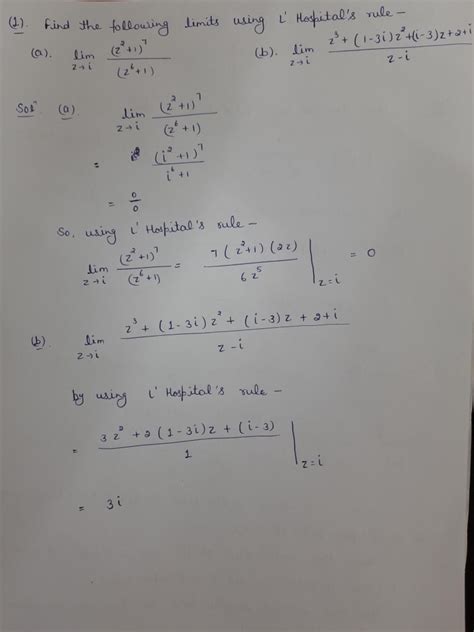 (1). Find the following limits using L' Hospital's rule –
(a). lim z→i (z²+1)⁷ / (z⁶+1) (b). lim z→i z³ + (1-3i)z²+(i-3)z+2+i / z-i
Solⁿ (a) lim z→i (z²+1)⁷ / (z⁶+1)
= (i²+1)⁷ / i⁶+1
= 0/0
So, using L' Hospital's rule –
lim z→i (z²+1)⁷ / (z⁶+1) = 7(z²+1)(2z) / 6z⁵ |z=i = 0
(b). lim z→i z³ + (1-3i)z² + (i-3)z + 2+i / z-i
by using L' Hospital's rule –
= 3z² + 2(1-3i)z + (i-3) / 1 |z=i
= 3i